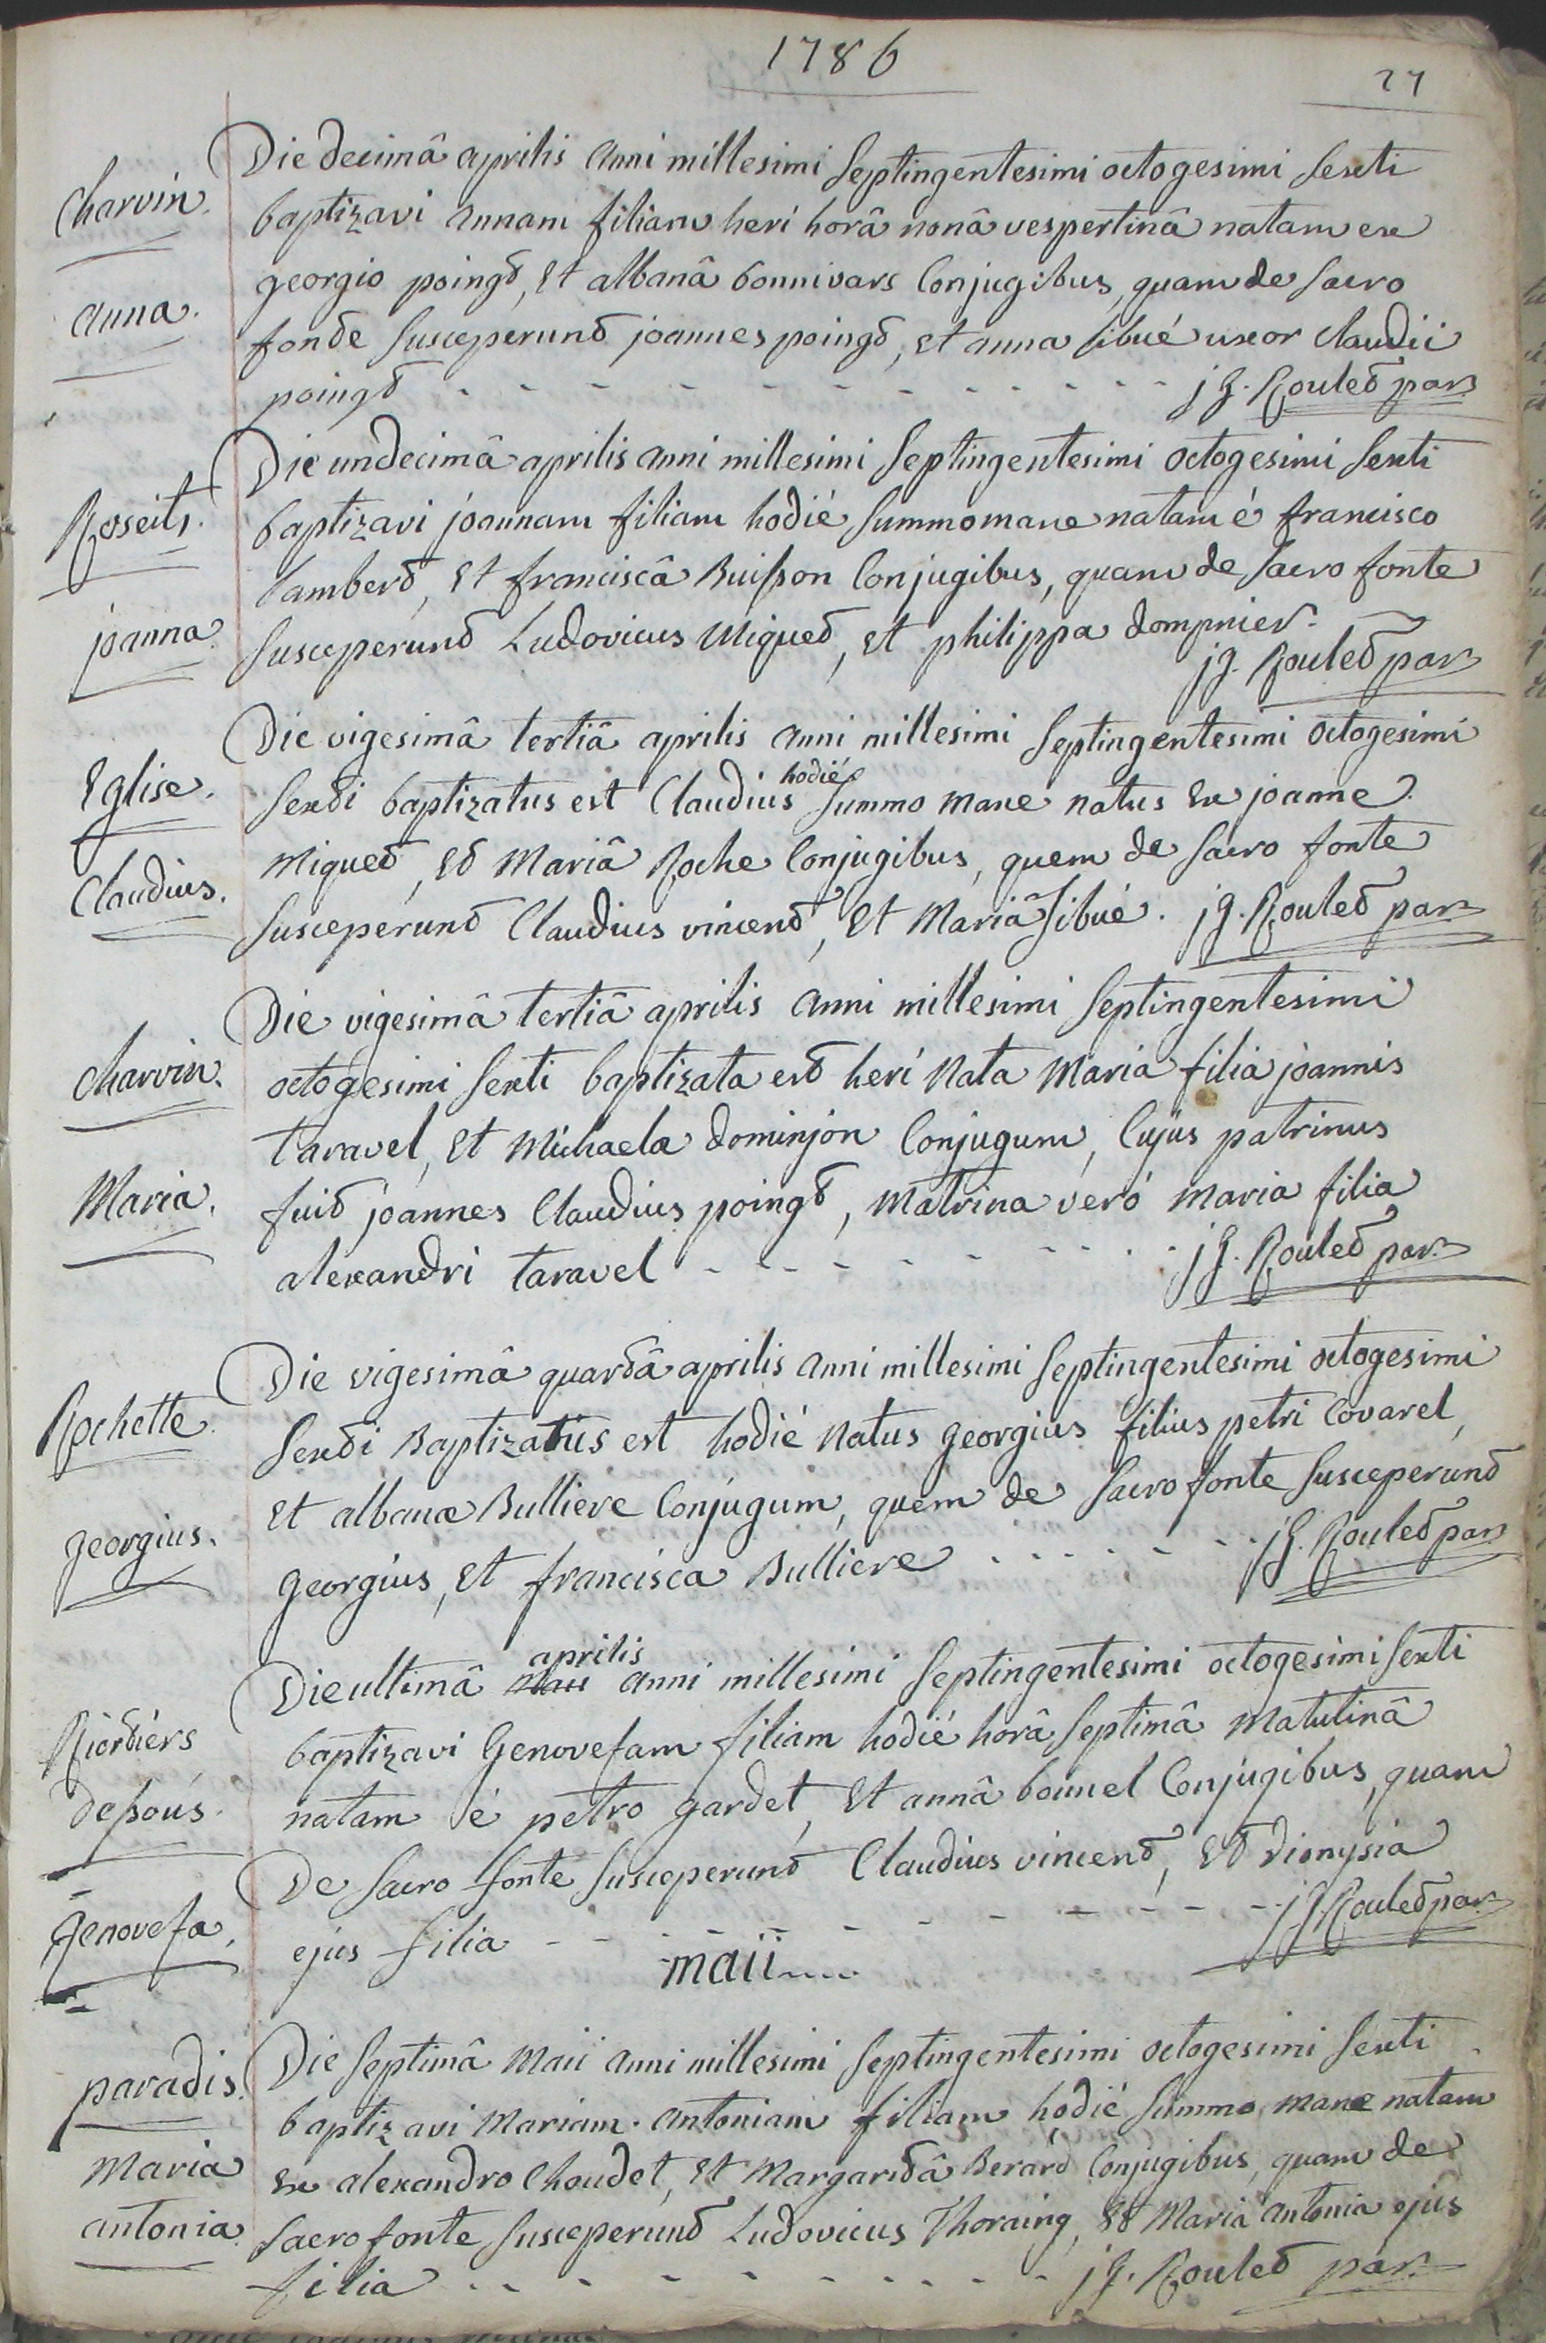 1786
27
Charvin.
anna.
Die decimâ aprilis anni millesimi septingentesimi octogesimi sexti
baptizavi annam filiam heri horâ nonâ vespertinâ natam ex
georgio poingt, et albanâ bonnivars conjugibus, quam de sacro
fonte susceperunt joannes poingt, et anna sibué uxor claudii
poingt - - - - - - - - - - - - - j g. Roulet par.
Roseits.
joanna.
Die undecimâ aprilis anni millesimi septingentesimi octogesimi sexti
baptizavi joannam filiam hodié summo mane natam é francisco
Lambert, et franciscâ Buisson conjugibus, quam de sacro fonte
susceperunt Ludovicus Miquet, et philippa dompnier.
j g. Roulet par
Eglise.
Claudius.
Die vigesimâ tertiâ aprilis anni millesimi septingentesimi octogesimi
hodié
sexti baptizatus est Claudius summo mane natus ex joanne
Miquet, et Mariâ Roche conjugibus, quem de sacro fonte
susceperunt Claudius vincent, et Mariâ sibué. j g. Roulet par
charvin.
Maria.
Die vigesimâ tertiâ aprilis anni millesimi septingentesimi
octogesimi sexti baptizata est heri nata Maria filia joannis
taravel, et Michaelæ dominjon conjugum, cujus patrinus
fuit joannes Claudius poingt, Matrina veró Maria filia
alexandri taravel - - - - - - - - - j g. Roulet par.
Rochette.
georgius.
Die vigesimâ quartâ aprilis anni millesimi septingentesimi octogesimi
sexti Baptizatus est hodié natus georgius filius petri Covarel,
et albanæ Bulliere conjugum, quem de sacro fonte susceperunt
georgius, et francisca Bulliere - - - - - - - j g. Roulet par
Rierdiers
dessous.
Genovefa.
aprilis
Die ultimâ maii anni millesimi septingentesimi octogesimi sexti
baptizavi Genovefam filiam hodié horâ septimâ matutinâ
natam é petro gardet, et annâ bonnel conjugibus, quam
de sacro fonte susceperunt Claudius vincent, et dionysia
ejus filia - - - - - - - - - - j g. Roulet par
maii....
paradis.
Maria
antonia.
Die septimâ Maii anni millesimi septingentesimi octogesimi sexti
baptizavi Mariam antoniam filiam hodié summo mane natam
ex alexandro Choudet, et Margaritâ Berard conjugibus, quam de
sacro fonte susceperunt Ludovicus Thoraing, et Maria antonia ejus
filia - - - - - - - - - - j g. Roulet par.